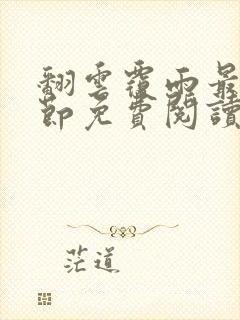 翻雲覆雨最
節免費閱讀
茫道